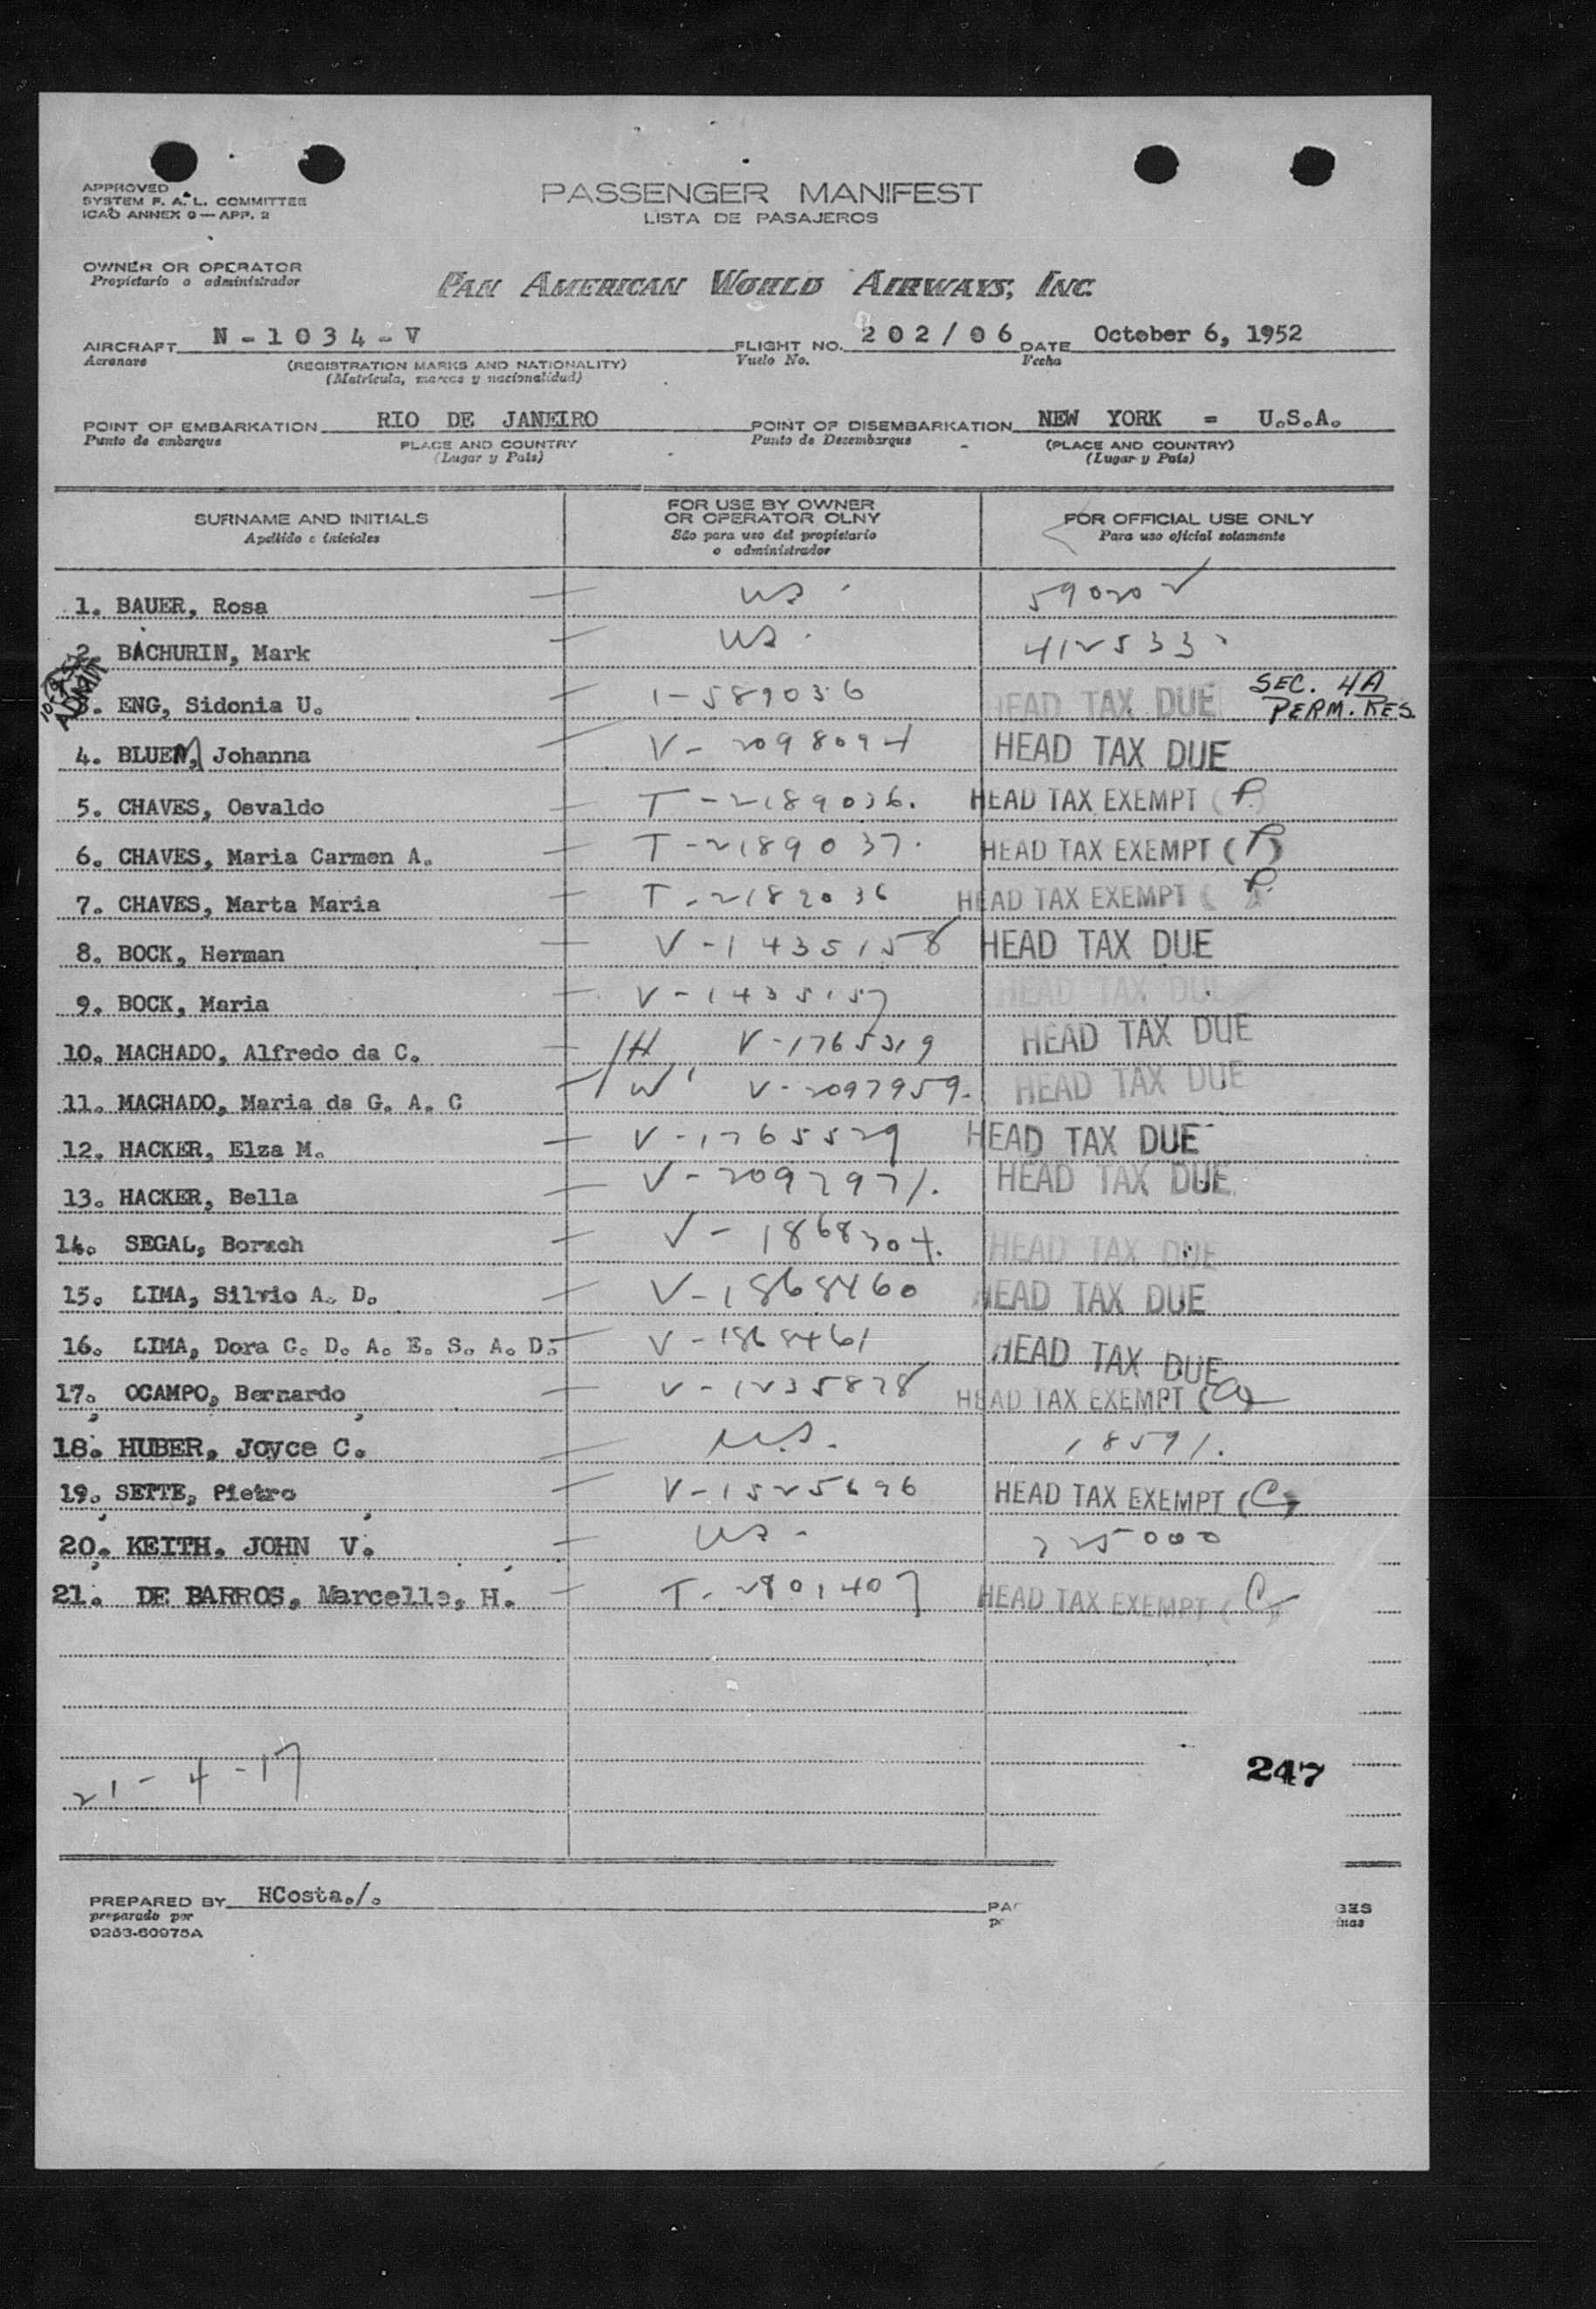 APPROVED
SYSTEM F. A. L. COMMITTEE
ICAO ANNEX 9 — APP. 2
PASSENGER MANIFEST
LISTA DE PASAJEROS
OWNER OR OPERATOR
Propietario o administrador
PAN AMERICAN WORLD AIRWAYS, INC.
AIRCRAFT N-1034-V FLIGHT NO. 202/06 DATE October 6, 1952
Aeronave (REGISTRATION MARKS AND NATIONALITY) Vuelo No. Fecha
(Matricula, marcas y nacionalidad)
POINT OF EMBARKATION RIO DE JANEIRO POINT OF DISEMBARKATION NEW YORK = U.S.A.
Punto de embarque PLACE AND COUNTRY Punto de Desembarque (PLACE AND COUNTRY)
(Lugar y Pais) (Lugar y Pais)
SURNAME AND INITIALS
Apellido e iniciales
FOR USE BY OWNER
OR OPERATOR OLNY
São para uso del propietario
o administrador
FOR OFFICIAL USE ONLY
Para uso oficial solamente
1. BAUER, Rosa US. 59020
2. BACHURIN, Mark US. 412533
ADMIT
3. ENG, Sidonia U. I-589036 HEAD TAX DUE SEC. 4A PERM. RES.
4. BLUEM, Johanna V-2098094 HEAD TAX DUE
5. CHAVES, Osvaldo T-2189036. HEAD TAX EXEMPT (P)
6. CHAVES, Maria Carmen A. T-2189037. HEAD TAX EXEMPT (P)
7. CHAVES, Marta Maria T-2189036 HEAD TAX EXEMPT (P)
8. BOCK, Herman V-1435158 HEAD TAX DUE
9. BOCK, Maria V-1435157 HEAD TAX DUE
10. MACHADO, Alfredo da C. H V-1765319 HEAD TAX DUE
11. MACHADO, Maria da G. A. C W V-2097959. HEAD TAX DUE
12. HACKER, Elza M. V-1765529 HEAD TAX DUE
13. HACKER, Bella V-2097971. HEAD TAX DUE
14. SEGAL, Borach V-1868304. HEAD TAX DUE
15. LIMA, Silvio A. D. V-1868460 HEAD TAX DUE
16. LIMA, Dora C. D. A. E. S. A. D. V-1868461 HEAD TAX DUE
17. OCAMPO, Bernardo V-1235878 HEAD TAX EXEMPT (a)
18. HUBER, Joyce C. U.S. 18591.
19. SETTE, Pietro V-1525696 HEAD TAX EXEMPT (C)
20. KEITH, JOHN V. US- 225000
21. DE BARROS, Marcelle, H. T-2801407 HEAD TAX EXEMPT (C)
247
21-4-17
PREPARED BY HCosta./.
preparado por
9263-60975A